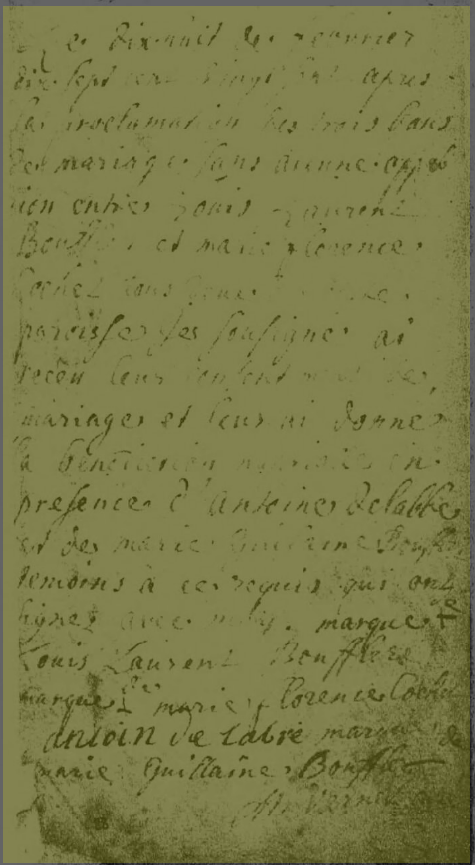 Le dix huit de
dix sept cent vingt sept apres
la proclamation des trois bans
de mariage sans aucune opposi
tion entre Louis Laurent
Bouffler et marie florence
Cochez tous deux
paroisse je sousigne ai
receu leur consentement de
mariage et leur ai donne
la benediction en
presence d'antoine delabbe
et de marie Guilaine
temoins à ce requis qui ont
signez avec moy. marque +
Louis Laurent Boufflers
marque marie florence
antoin de labre marque de
marie Guillaine Bouffler